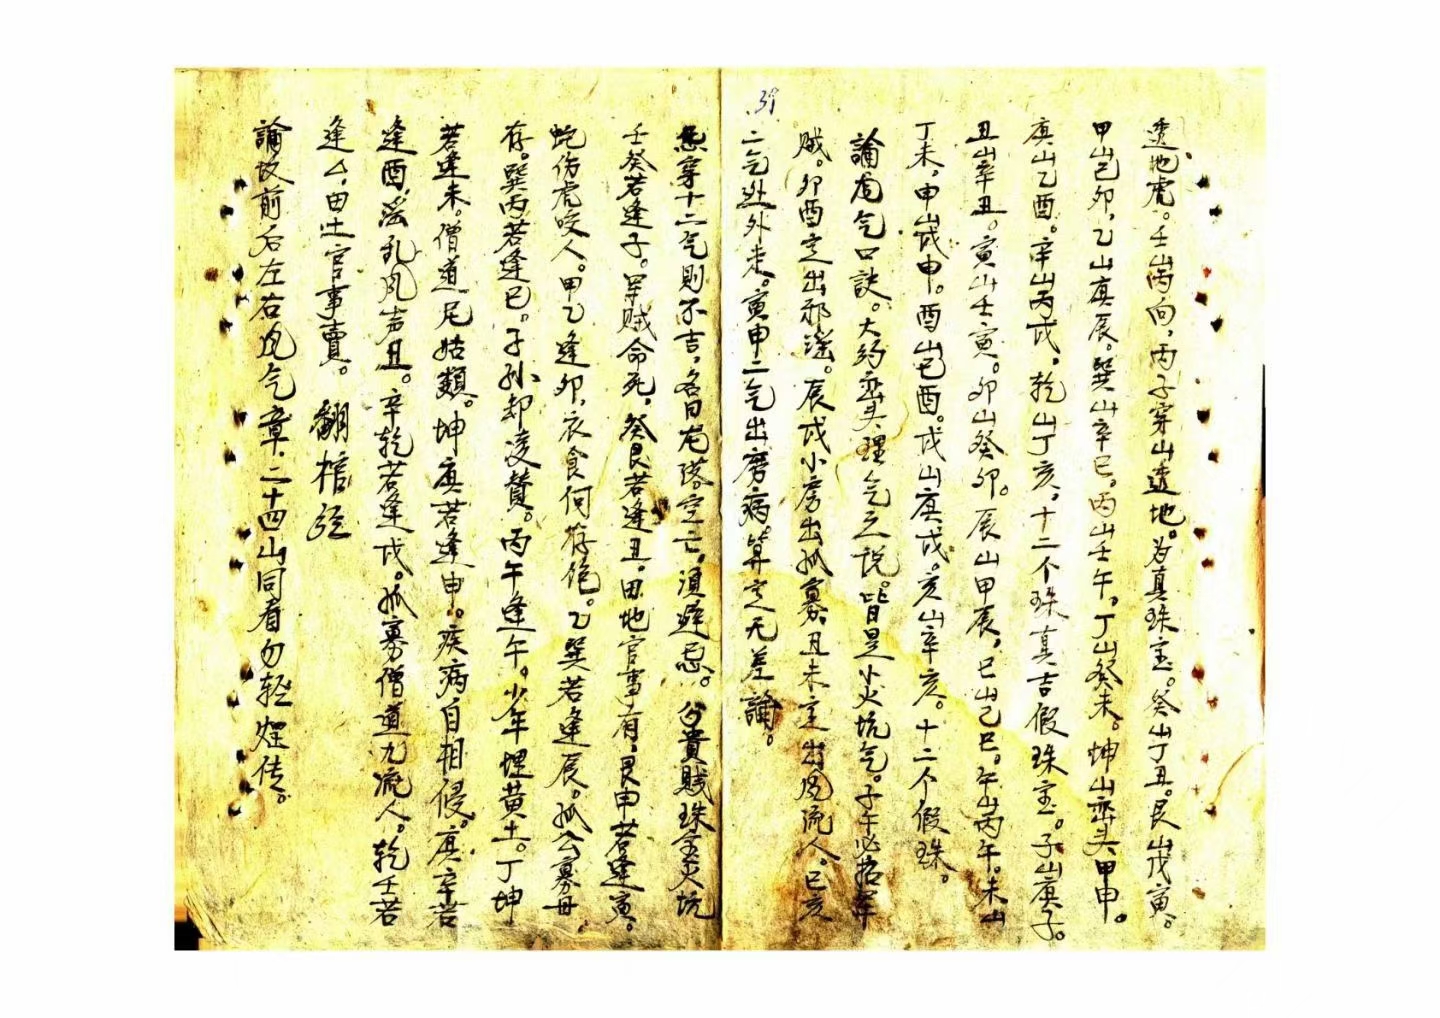 39
透地虎。壬山丙向，丙子穿山透地。为真珠宝。癸山丁丑。艮山戊寅。
甲山己卯，乙山庚辰。巽山辛巳。丙山壬午，丁山癸未。坤山齊头甲申。
庚山乙酉。辛山丙戌，乾山丁亥，十二个珠真吉假珠宝。子山庚子。
丑山辛丑。寅山壬寅。卯山癸卯。辰山甲辰，巳山乙巳。午山丙午。未山
丁未，申山戊申。酉山己酉。戌山庚戌。亥山辛亥。十二个假珠。
論龙气口訣。大約齊头理气之说。皆是小火坑气。子午必招軍
贼。卯酉定出邪淫。辰戌小房出孤寡，丑未定出风流人。巳亥
二气迯外走。寅申二气出痨病。算定无差論。
穿十二气则不吉，名曰龙落空亡，須避忌。分貴贱珠宝火坑
壬癸若逢子。军贼命死，癸艮若逢丑。田地官事有，艮甲若逢寅。
蛇伤虎咬人。甲乙逢卯，衣食何存饱。乙巽若逢辰。孤公寡母
存。巽丙若逢巳。子孙却凌賛。丙午逢午。少年埋黄土。丁坤
若逢未。僧道尼姑類。坤庚若逢申。疾病自相侵。庚辛若
逢酉，淫乱风声丑。辛乾若逢戌。孤寡僧道九流人。乾壬若
逢厶，田土官事賣。 翻棺经
論坟前后左右风气章，二十四山同看勿轻 传。